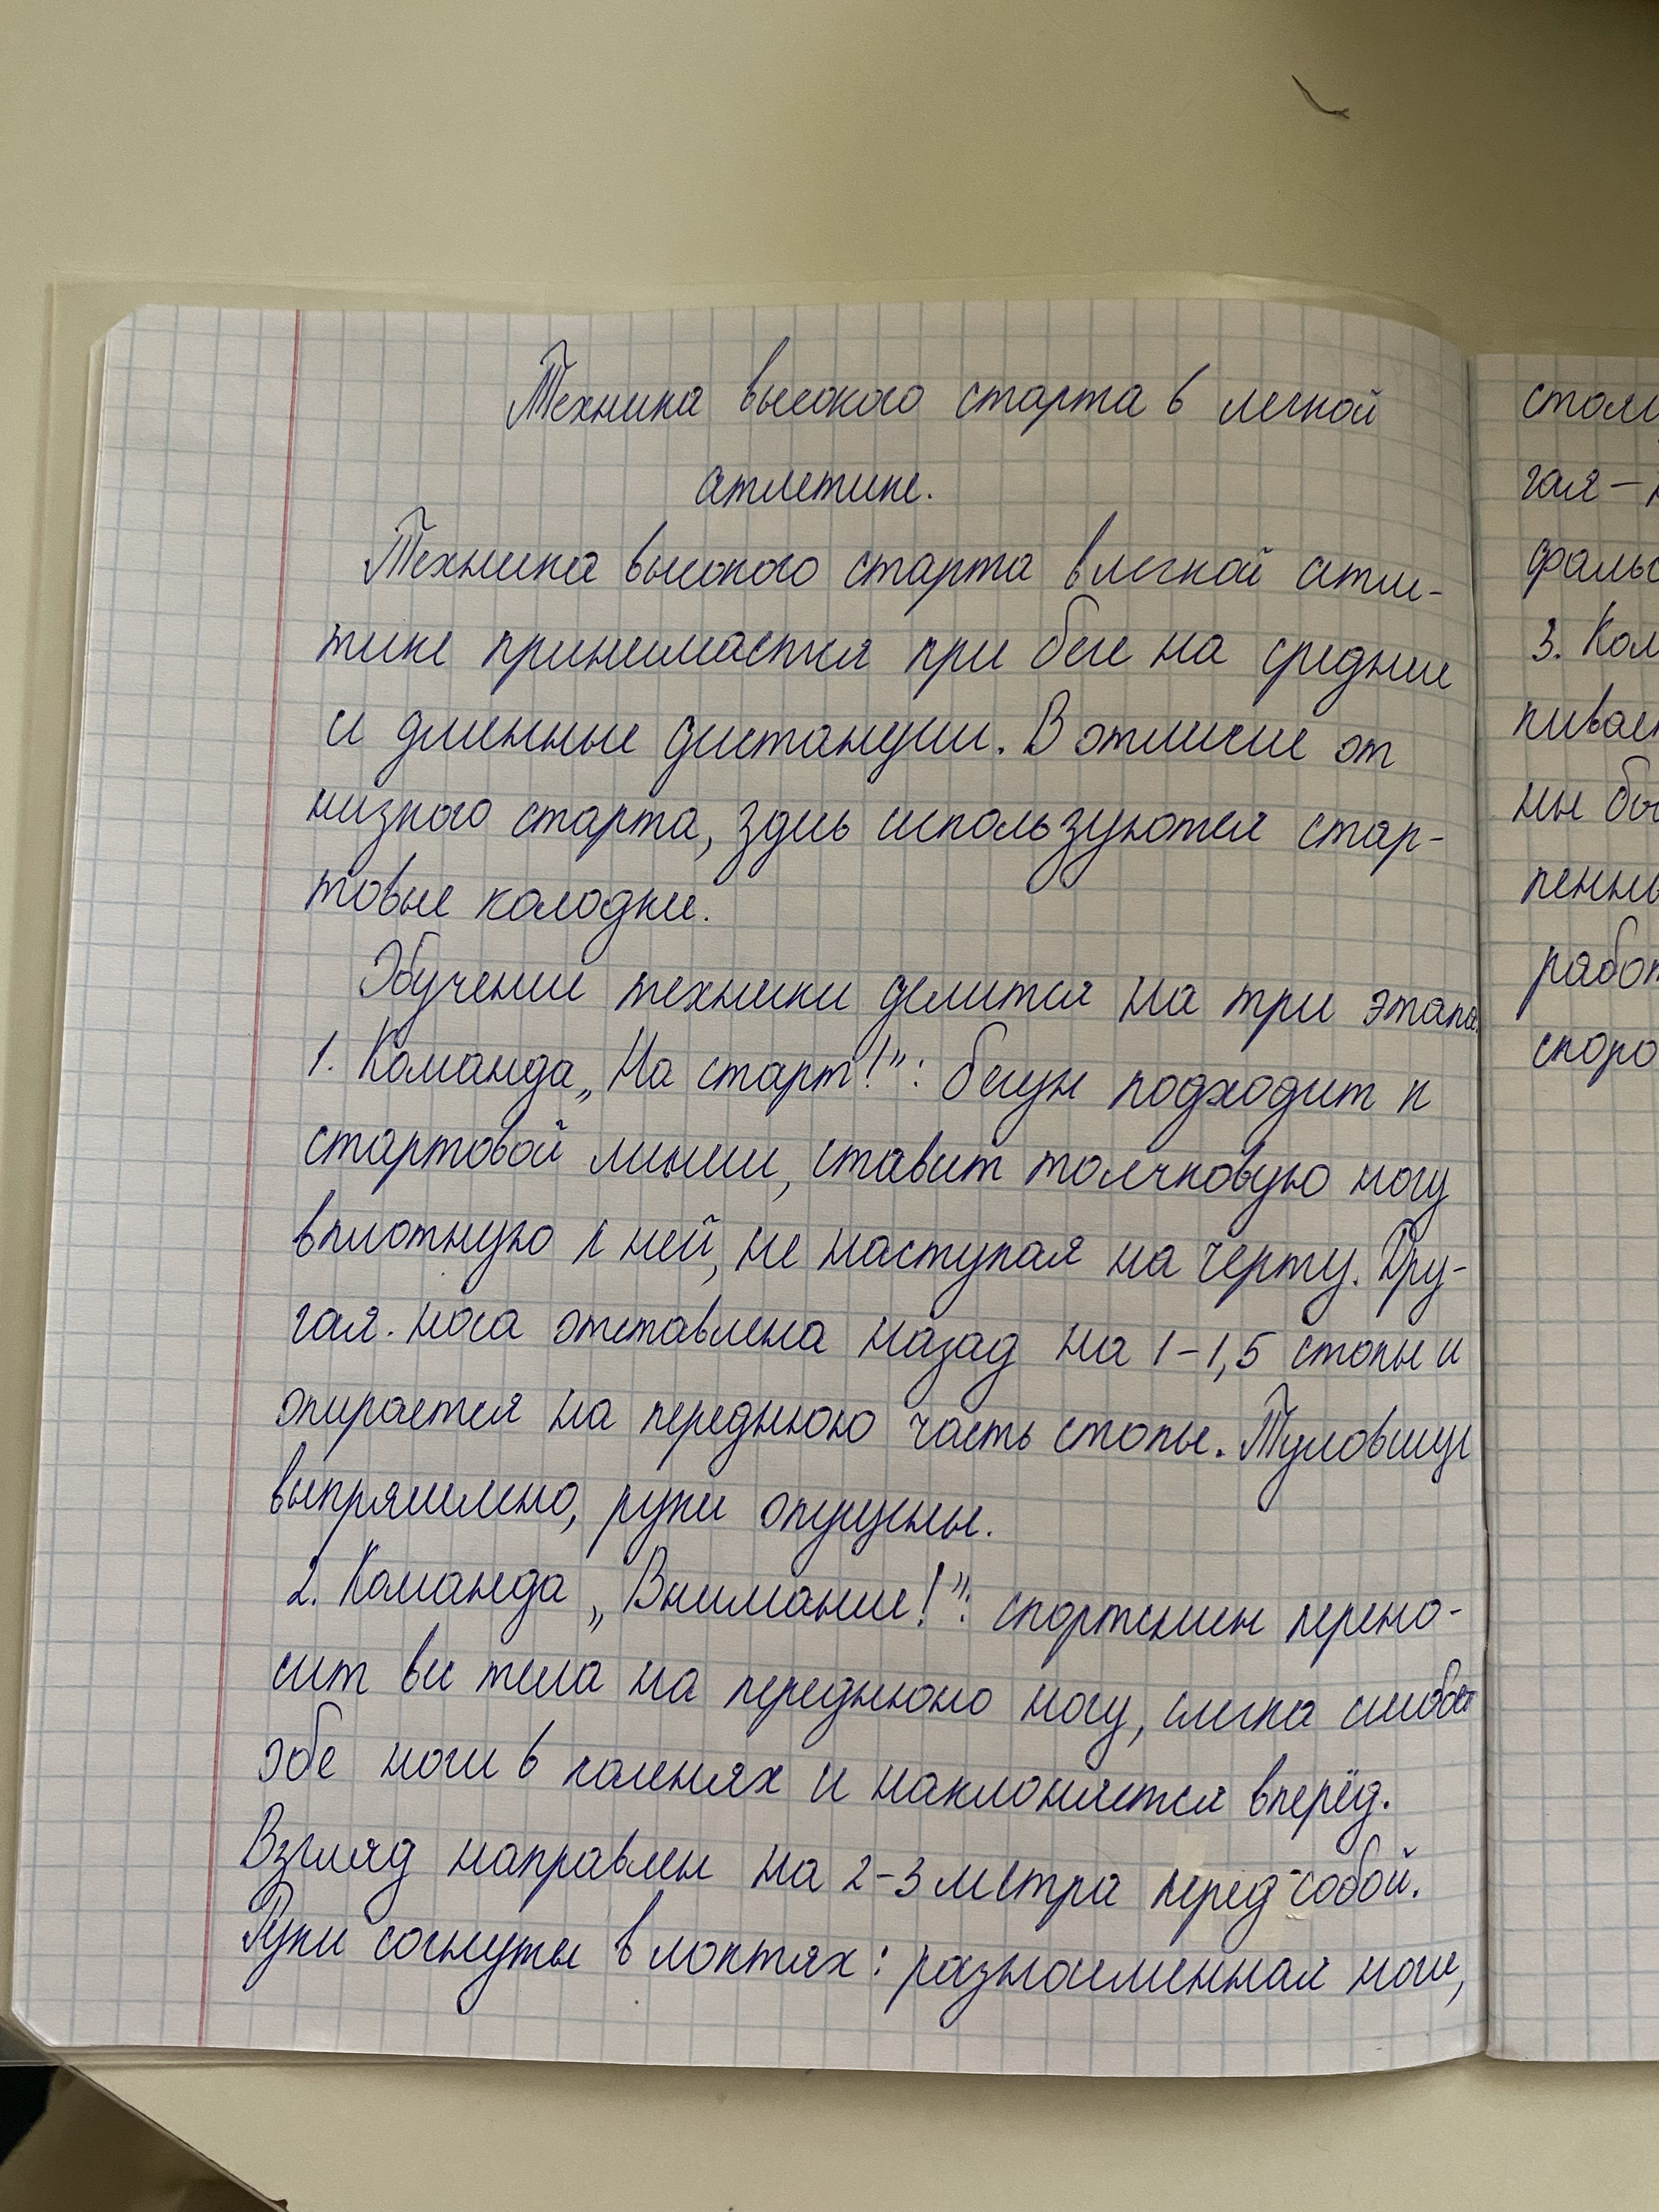 Техника высокого старта в легкой
атлетике.
Техника высокого старта в легкой атле-
тике принимается при беге на средние
и длинные дистанции. В отличие от
низкого старта, здесь используются стар-
товые колодки.
Обучение техники делится на три этапа.
1. Команда „На старт!”: бегун подходит к
стартовой линии, ставит толчковую ногу
вплотную к ней, не наступая на черту. Дру-
гая. нога отставлена назад на 1-1,5 стопы и
опирается на переднюю часть стопы. Туловище
выпрямлено, руки опущены.
2. Команда „Внимание!”: спортсмен перено-
сит вес тела на переднюю ногу, слегка сгибает
обе ноги в коленях и наклоняется вперёд.
Взгляд направлен на 2-3 метра перед собой.
Руки согнуты в локтях: разноименная ноге,
гая —
3. Ком
ны бы